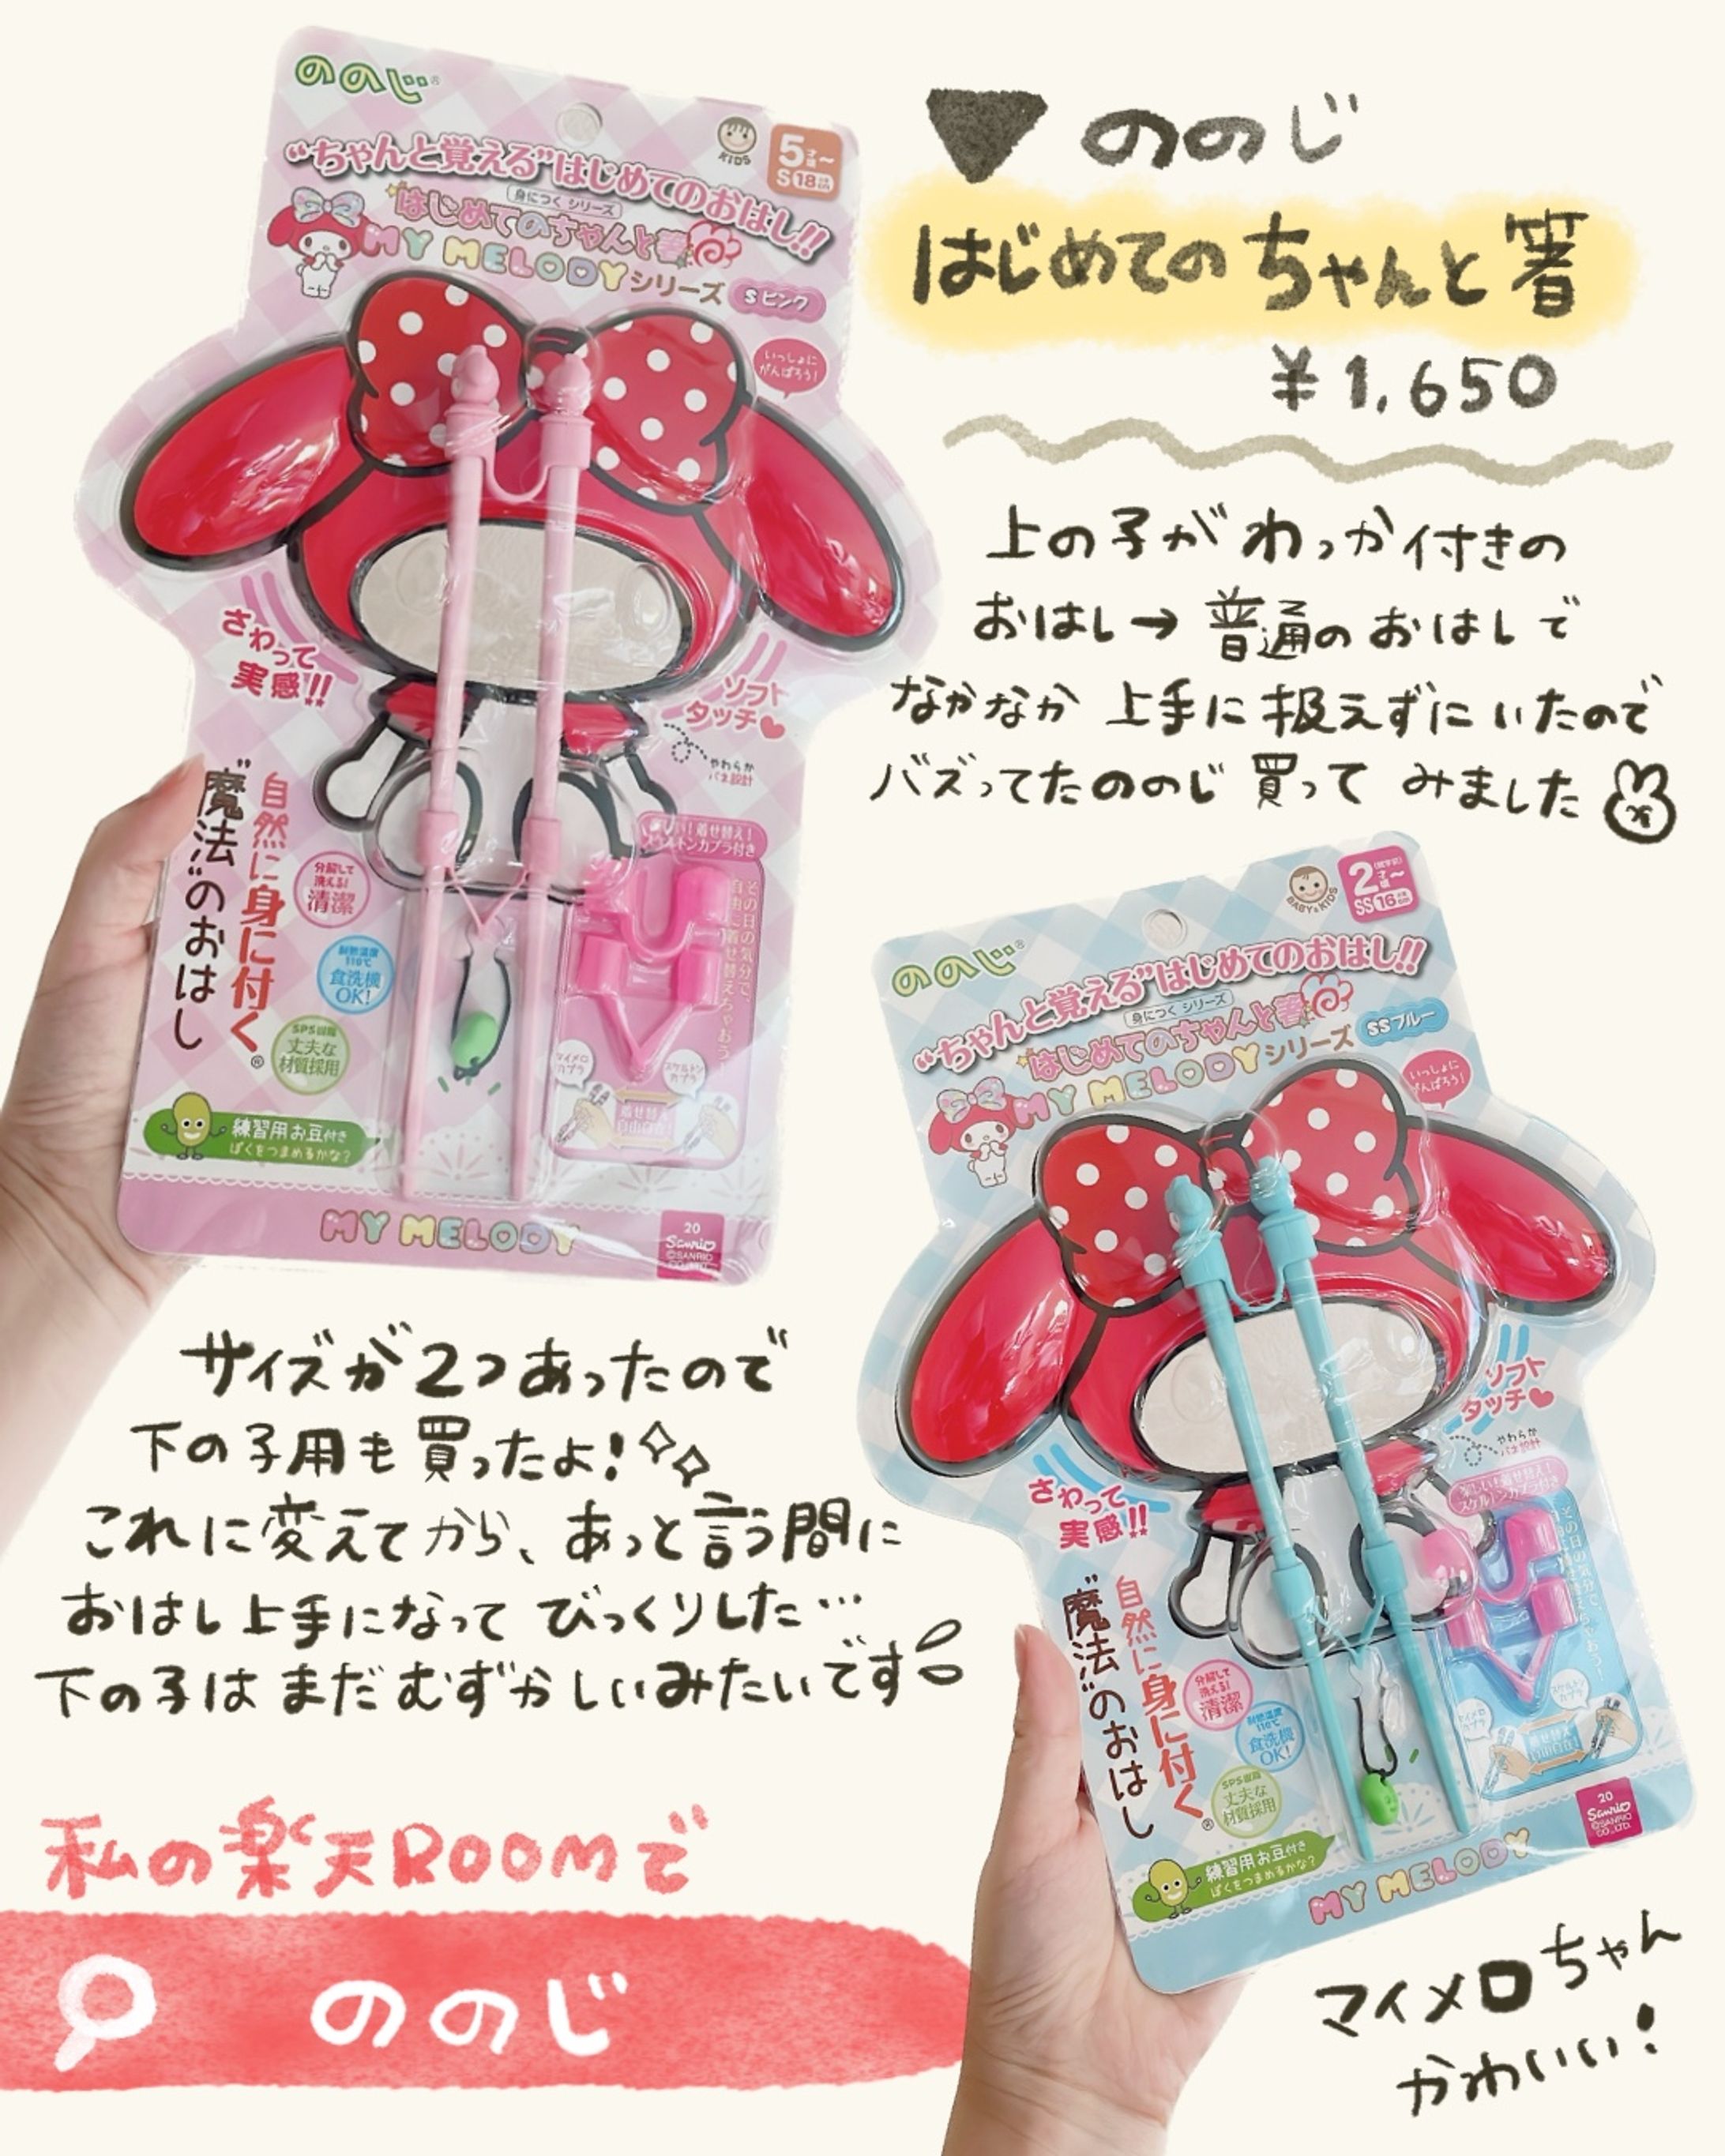 ▼ののじ
はじめてのちゃんと箸
¥1,650
上の子がわっか付きの
おはし→普通のおはしで
なかなか上手に扱えずにいたので
バズってたののじ買ってみました
ののじ®
KIDS
5才頃〜
S 18cm
"ちゃんと覚える"はじめてのおはし!!
身につくシリーズ
はじめてのちゃんと箸
MY MELODYシリーズ
Sピンク
いっしょに
がんばろう!
さわって
実感!!
ソフト
タッチ
やわらか
バネ設計
自然に身に付く®
"魔法"のおはし
分解して
洗える!
清潔
耐熱温度
110℃
食洗機
OK!
SPS樹脂
丈夫な
材質採用
練習用お豆付き
ぼくをつまめるかな?
着せ替え!
その日の気分で、
自由に着せ替えちゃおう!
マイメロ
カプラ
スケルトン
カプラ
着せ替え
自由自在!
MY MELODY
20
Sanrio
©SANRIO
サイズが2つあったので
下の子用も買ったよ!
これに変えてから、あっと言う間に
おはし上手になってびっくりした…
下の子はまだむずかしいみたいです
ののじ®
BABY&KIDS
2才頃〜
SS 16cm
"ちゃんと覚える"はじめてのおはし!!
身につくシリーズ
はじめてのちゃんと箸
MY MELODYシリーズ
SSブルー
いっしょに
がんばろう!
さわって
実感!!
ソフト
タッチ
やわらか
バネ設計
楽しい!着せ替え!
スケルトンカプラ付き
自然に身に付く®
"魔法"のおはし
分解して
洗える!
清潔
耐熱温度
110℃
食洗機
OK!
SPS樹脂
丈夫な
材質採用
練習用お豆付き
ぼくをつまめるかな?
スケルトン
カプラ
MY MELODY
20
Sanrio
©SANRIO
CO.,LTD.
私の楽天ROOMで
ののじ
マイメロちゃん
かわいい!